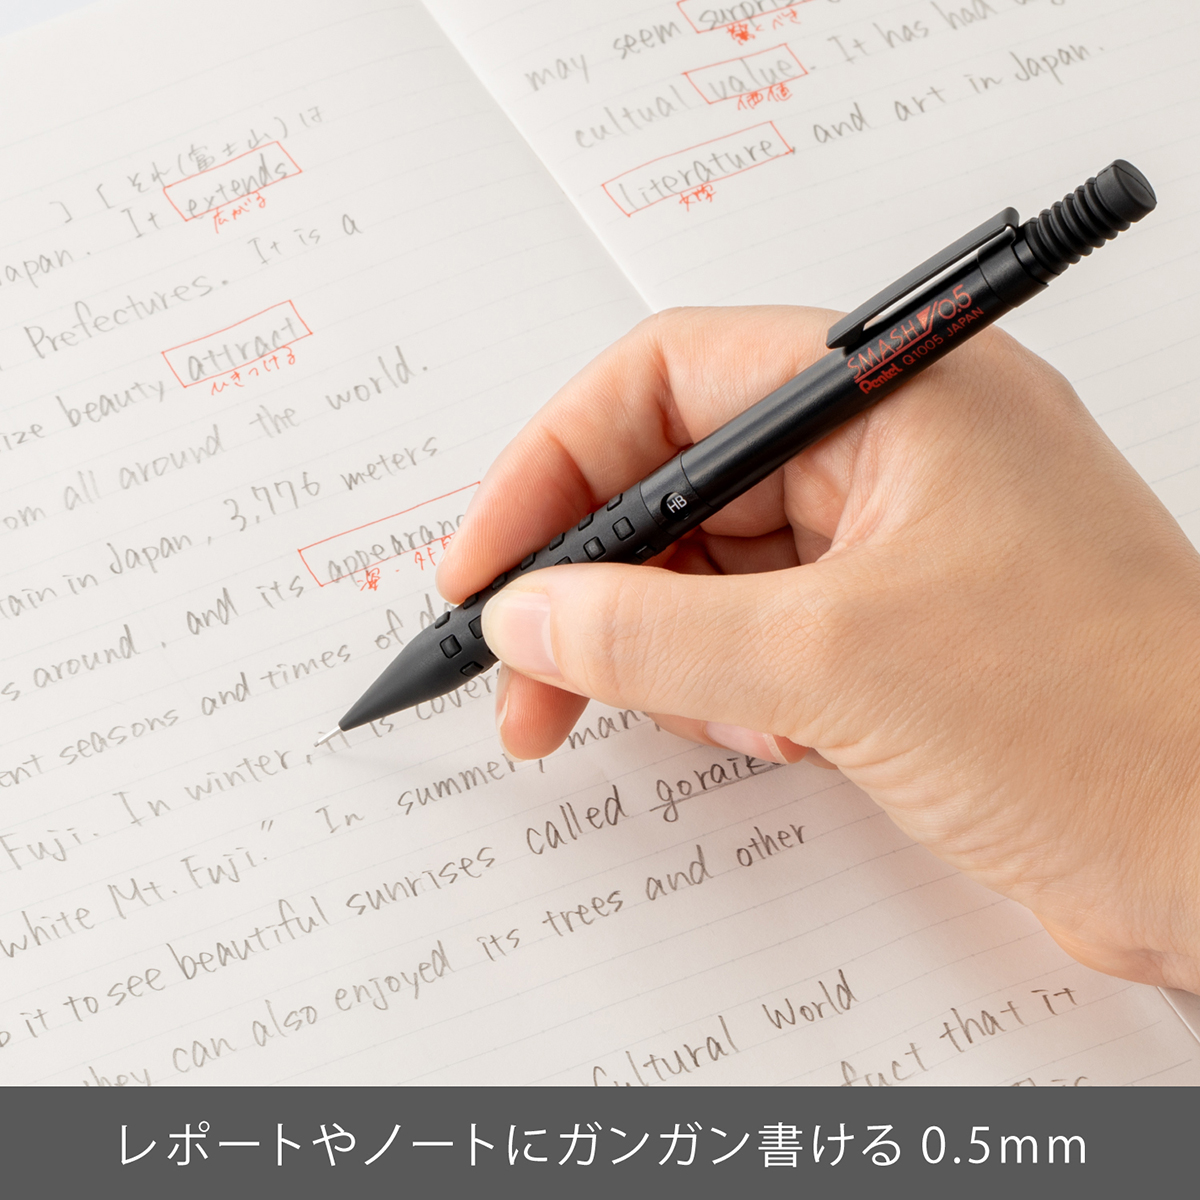 ] [ それ(富士山)は
apan. It extends
広がる
Prefectures. It is a
ize beauty attract
ひきつける
om all around the world.
3,776 meters
tain in Japan,
s around, and its appearanc
姿・外見
ent seasons and times of d
Fuji. In winter, it is cover
white Mt. Fuji." In summer, man
o it to see beautiful sunrises called goraik
they can also enjoyed its trees and other
Cultural World
fact that it
may seem surpris
驚くべき
cultual value. It has had
価値
literature, and art in Japan.
文学
SMASH 0.5
Pentel Q1005 JAPAN
HB
レポートやノートにガンガン書ける 0.5mm